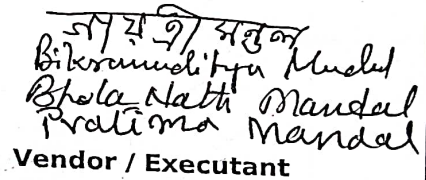 জয়শ্রী মন্ডল
Bikramaditya Mandal
Bhola Nath Mandal
Pratima Mandal
Vendor / Executant